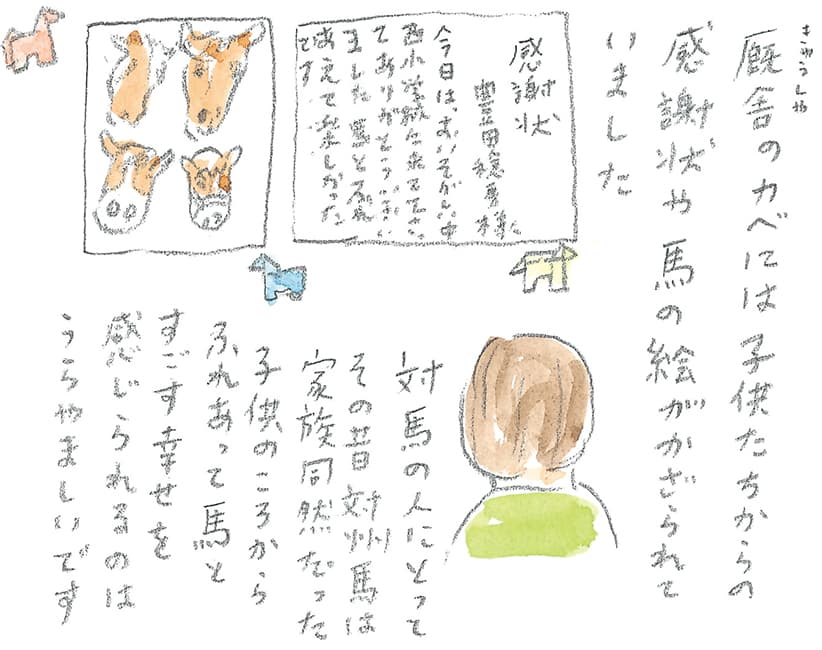 きゅうしゃ
厩舎のカベには子供たちからの
感謝状や馬の絵がかざられて
いました
感謝状
豊田穂香様に
今日は、おいそがしい中
西小学校に来て下さっ
てありがとうございい
ました 馬とふれ
あえて楽しかった
です
対馬の人にとって
その昔対州馬は
家族同然だった
子供のころから
ふれあって馬と
すごす幸せを
感じられるのは
うらやましいです